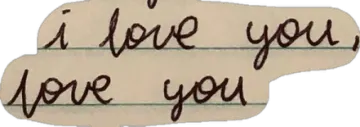 i love you,
love you